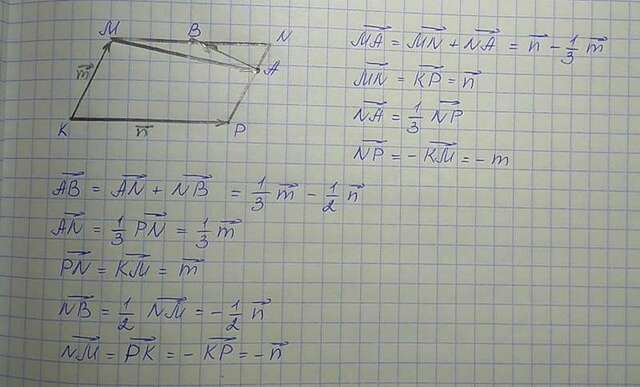 M B N
m⃗ A
K n⃗ P
M⃗A = M⃗N + N⃗A = n⃗ - 1/3 m⃗
M⃗N = K⃗P = n⃗
N⃗A = 1/3 N⃗P
N⃗P = - K⃗M = - m
A⃗B = A⃗N + N⃗B = 1/3 m⃗ - 1/2 n⃗
A⃗N = 1/3 P⃗N = 1/3 m⃗
P⃗N = K⃗M = m⃗
N⃗B = 1/2 N⃗M = - 1/2 n⃗
N⃗M = P⃗K = - K⃗P = - n⃗